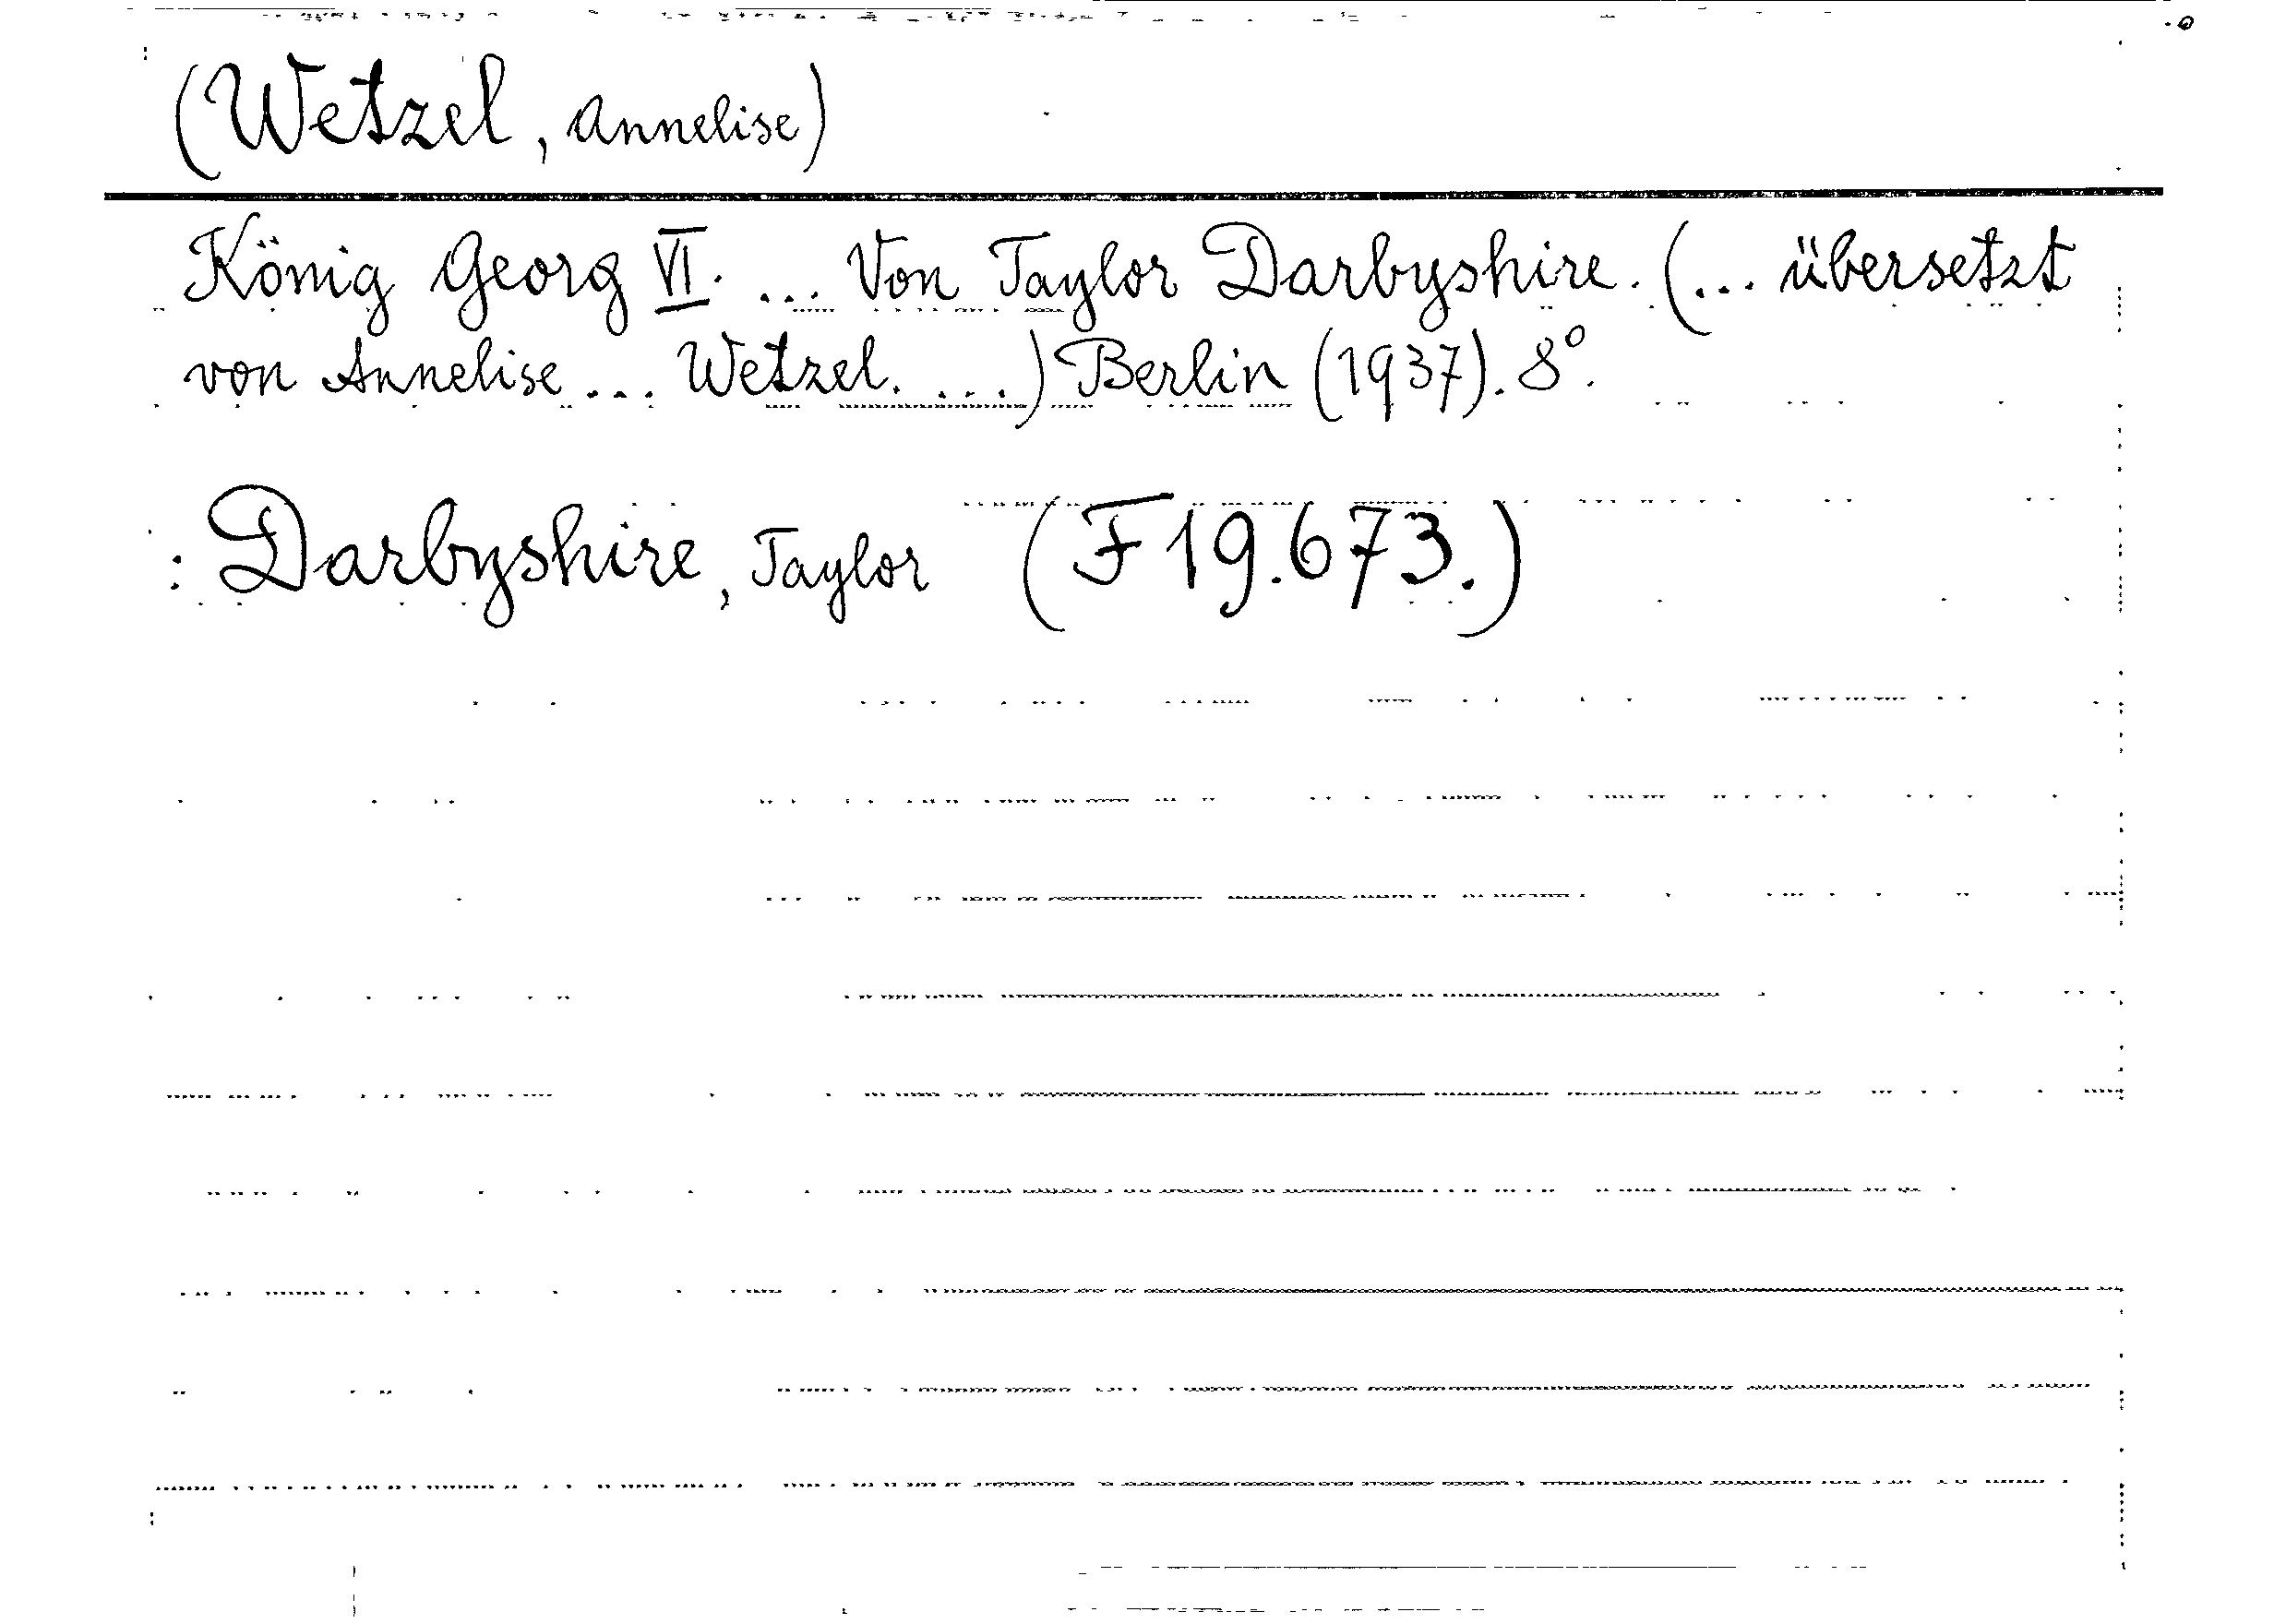 (Wetzel, Annelise)
König Georg VI. ... Von Taylor Darbyshire. (... übersetzt
von Annelise ... Wetzel. ...) Berlin (1937). 8°.
: Darbyshire, Taylor (F 19.673.)